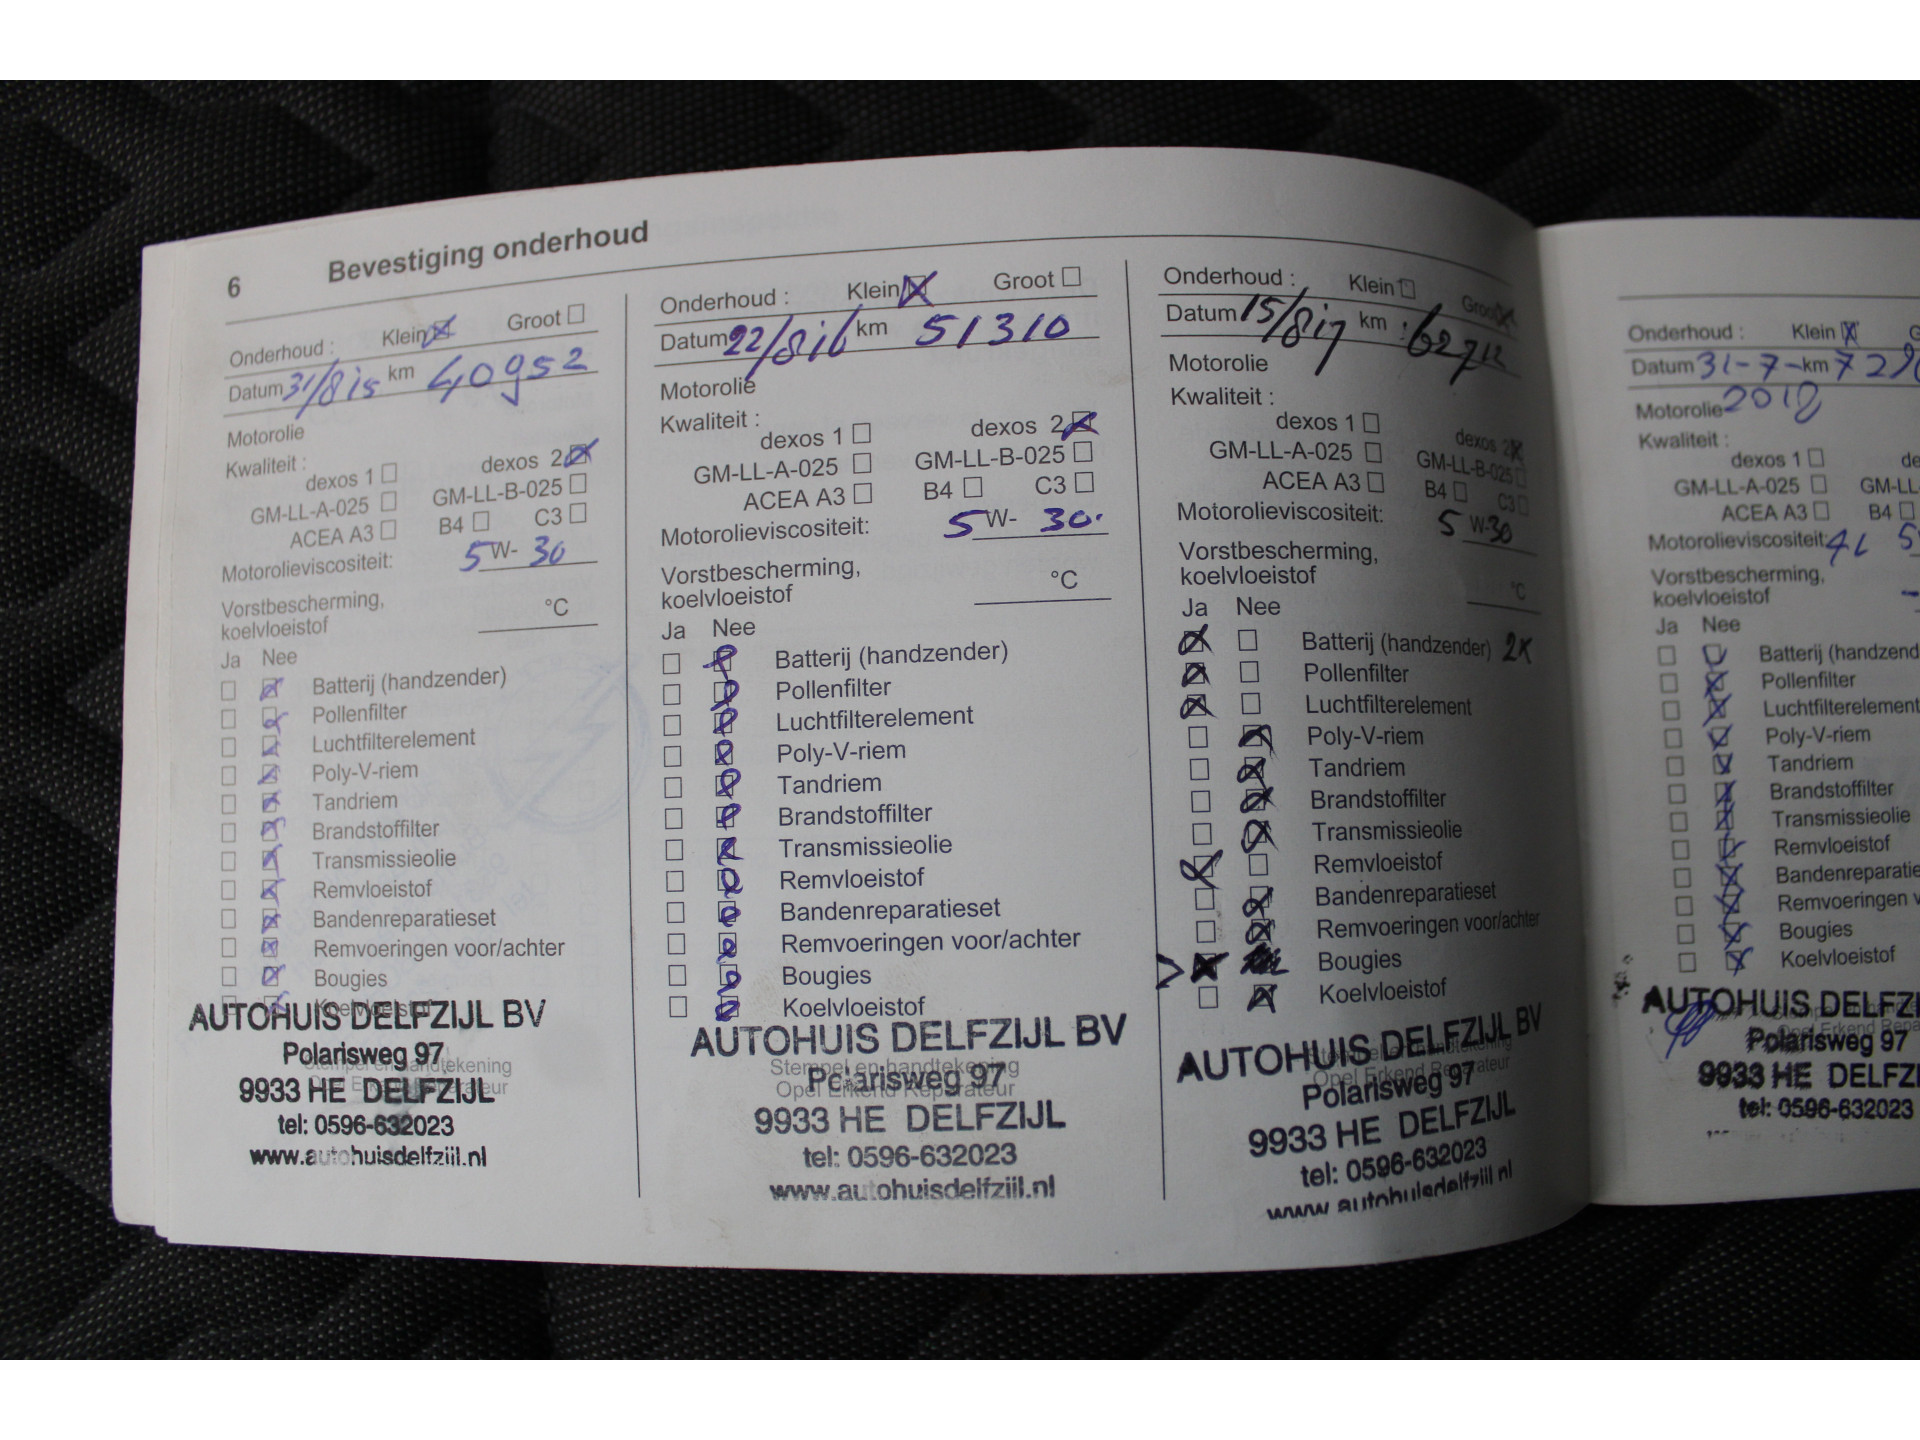 6 Bevestiging onderhoud
Onderhoud : Klein Groot
Datum 31/8 15 km 40952
Motorolie
Kwaliteit :
dexos 1 dexos 2
GM-LL-A-025 GM-LL-B-025
ACEA A3 B4 C3
Motorolieviscositeit: 5 W- 30
Vorstbescherming,
koelvloeistof °C
Ja Nee
Batterij (handzender)
Pollenfilter
Luchtfilterelement
Poly-V-riem
Tandriem
Brandstoffilter
Transmissieolie
Remvloeistof
Bandenreparatieset
Remvoeringen voor/achter
Bougies
Koelvloeistof
AUTOHUIS DELFZIJL BV
Polarisweg 97
Stempel en handtekening
9933 HE DELFZIJL
Opel Erkend Reparateur
tel: 0596-632023
www.autohuisdelfzijl.nl
Onderhoud : Klein Groot
Datum 22/8 16 km 51310
Motorolie
Kwaliteit :
dexos 1 dexos 2
GM-LL-A-025 GM-LL-B-025
ACEA A3 B4 C3
Motorolieviscositeit: 5 W- 30.
Vorstbescherming,
koelvloeistof °C
Ja Nee
Batterij (handzender)
Pollenfilter
Luchtfilterelement
Poly-V-riem
Tandriem
Brandstoffilter
Transmissieolie
Remvloeistof
Bandenreparatieset
Remvoeringen voor/achter
Bougies
Koelvloeistof
AUTOHUIS DELFZIJL BV
Stempel en handtekening
Polarisweg 97
Opel Erkend Reparateur
9933 HE DELFZIJL
tel: 0596-632023
www.autohuisdelfzijl.nl
Onderhoud : Klein Groot
Datum 15/8 17 km : 62712
Motorolie
Kwaliteit :
dexos 1 dexos 2
GM-LL-A-025 GM-LL-B-025
ACEA A3 B4 C3
Motorolieviscositeit: 5 W-30
Vorstbescherming,
koelvloeistof °C
Ja Nee
Batterij (handzender) 2x
Pollenfilter
Luchtfilterelement
Poly-V-riem
Tandriem
Brandstoffilter
Transmissieolie
Remvloeistof
Bandenreparatieset
Remvoeringen voor/achter
Bougies
Koelvloeistof
AUTOHUIS DELFZIJL BV
Stempel en handtekening
Opel Erkend Reparateur
Polarisweg 97
9933 HE DELFZIJL
tel: 0596-632023
www.autohuisdelfzijl.nl
Onderhoud : Klein G
Datum 31-7- km 729
Motorolie 2018
Kwaliteit :
dexos 1 de
GM-LL-A-025 GM-LL
ACEA A3 B4
Motorolieviscositeit: 4L 5
Vorstbescherming,
koelvloeistof -
Ja Nee
Batterij (handzend
Pollenfilter
Luchtfilterelement
Poly-V-riem
Tandriem
Brandstoffilter
Transmissieolie
Remvloeistof
Bandenreparatie
Remvoeringen v
Bougies
Koelvloeistof
AUTOHUIS DELFZI
Opel Erkend Repa
Polarisweg 97
9933 HE DELFZI
tel: 0596-632023